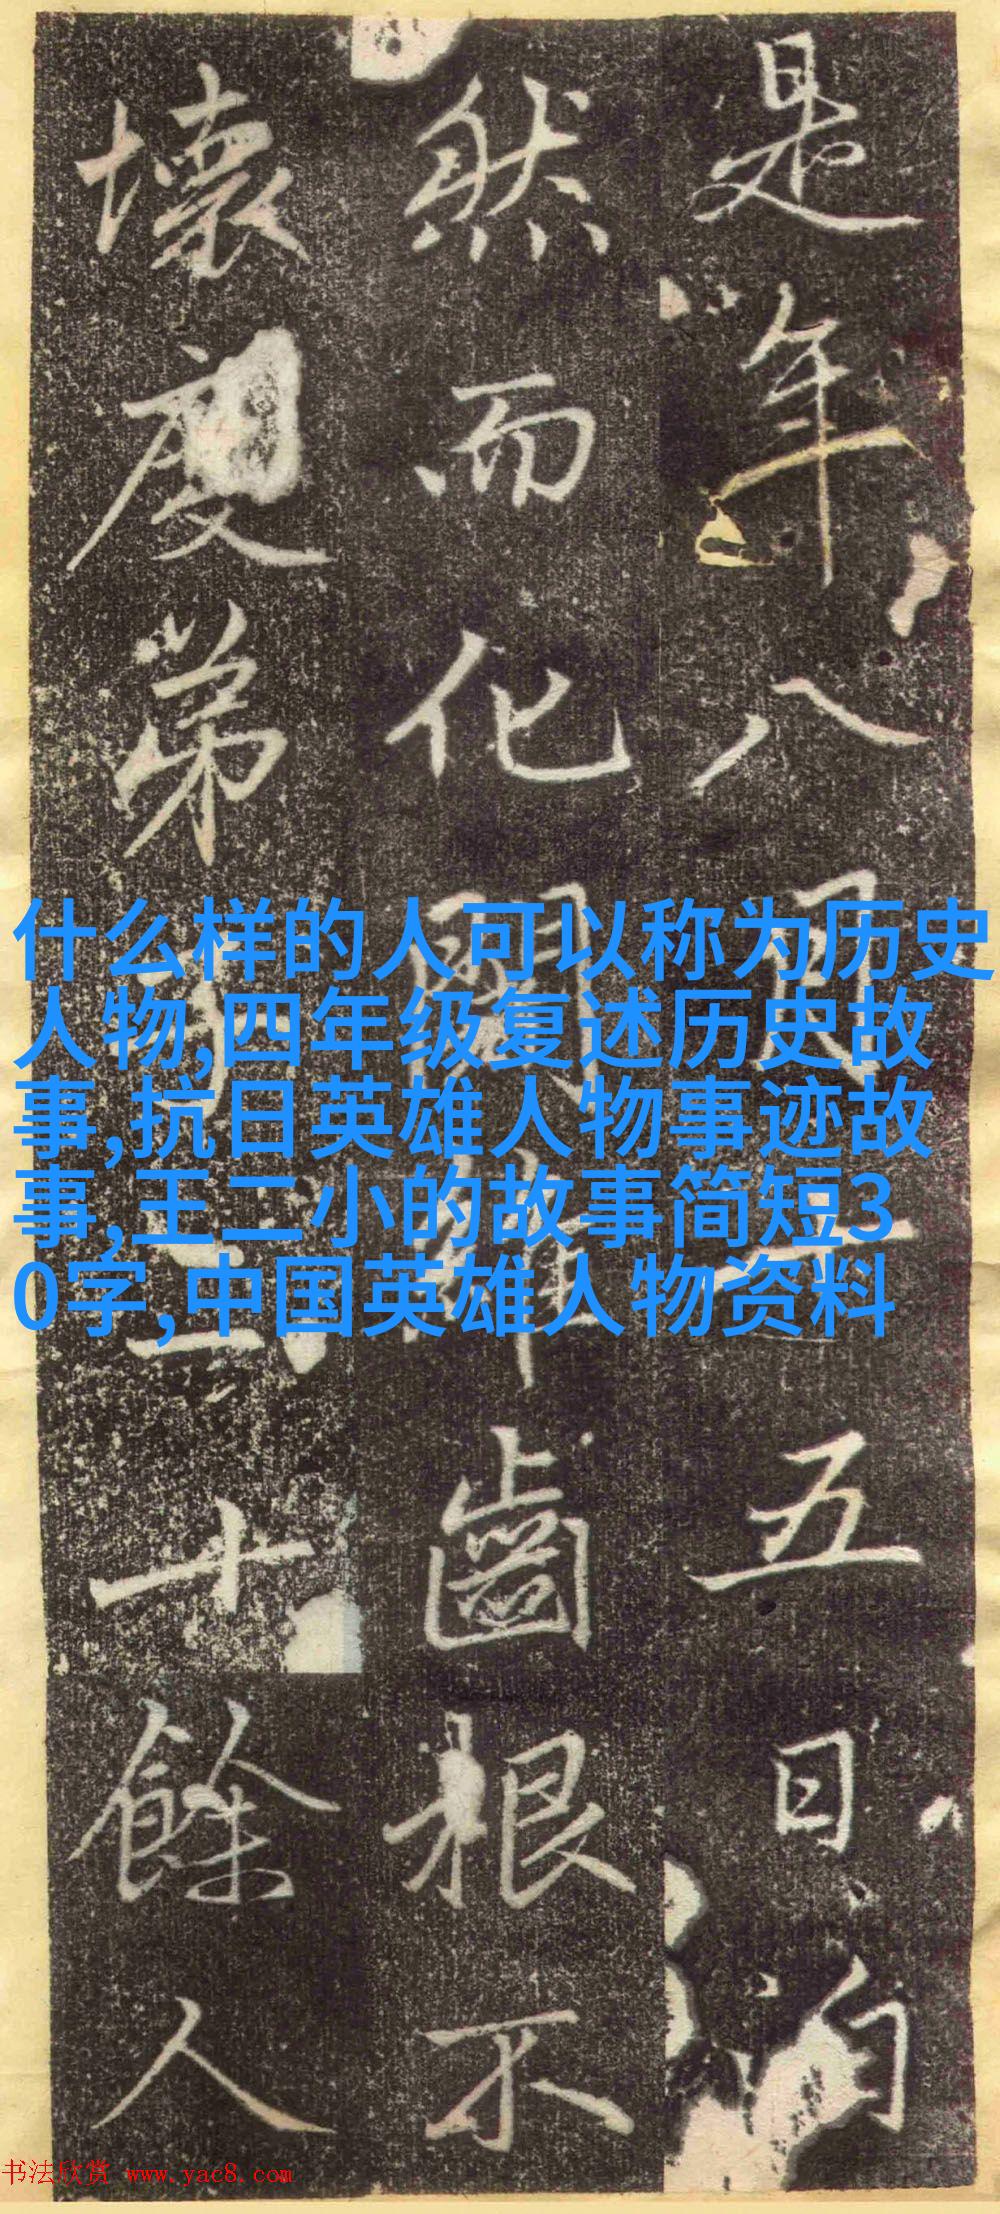 是年八月十五日
然而化齒根不
壞度弟十餘人
什么样的人可以称为历史
人物,四年级复述历史故
事,抗日英雄人物事迹故
事,王二小的故事简短3
0字,中国英雄人物资料
书法欣赏 www.yac8.com